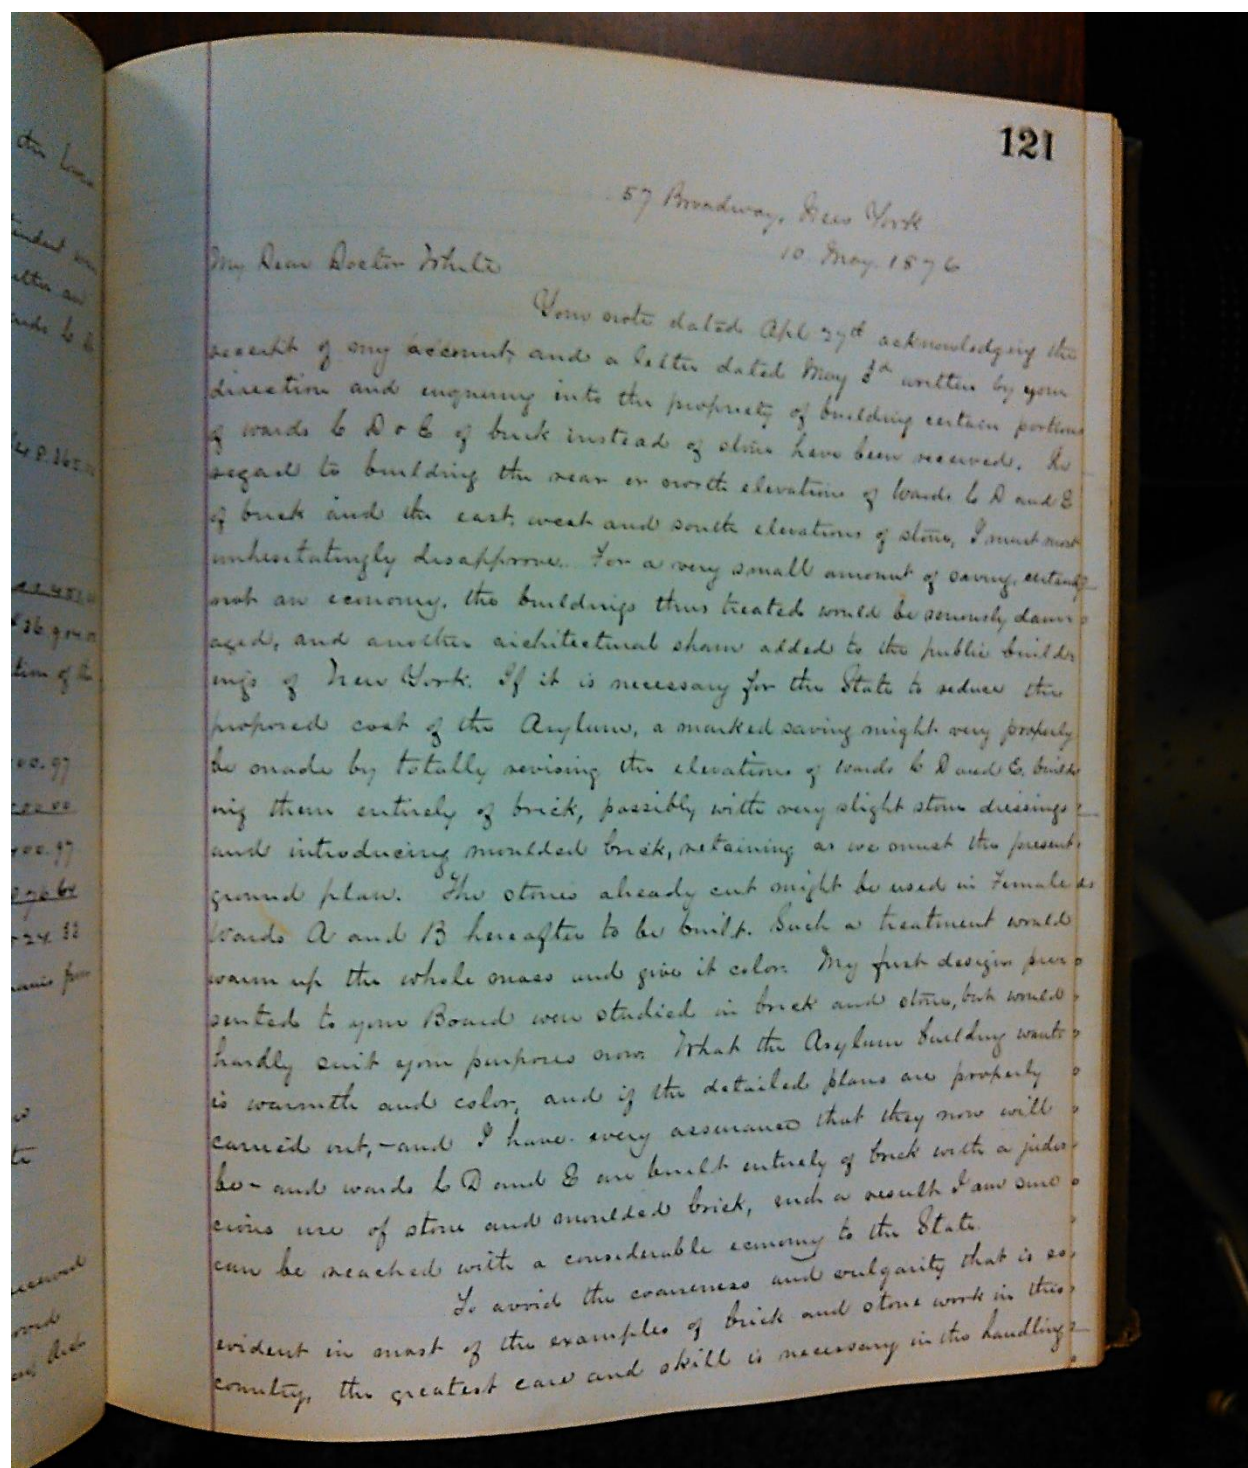 121
57 Broadway, New York
10 May. 1876
My Dear Doctor White
Your note dated Apl 29th acknowledging the
receipt of my account, and a letter dated May 3d written by your
direction and enquiring into the propriety of building certain portions
of wards C D & E of brick instead of stone have been received. In
regard to building the rear or north elevations of wards C D and E
of brick and the east, west and south elevations of stone, I must most
unhesitatingly disapprove. For a very small amount of saving, certainly
not an economy, the buildings thus treated would be seriously dam-
aged, and another architectural sham added to the public build-
ings of New York. If it is necessary for the State to reduce the
proposed cost of the Asylum, a marked saving might very properly
be made by totally revising the elevations of wards C D and E, build-
ing them entirely of brick, possibly with very slight stone dressings
and introducing moulded brick, retaining as we must the present
ground plan. The stones already cut might be used in Female
Wards A and B hereafter to be built. Such a treatment would
warm up the whole mass and give it color. My first designs pre-
sented to your Board were studied in brick and stone, but would
hardly suit your purposes now. What the Asylum building wants
is warmth and color, and if the detailed plans are properly
carried out, - and I have every assurance that they now will
be - and wards C D and E are built entirely of brick with a judi-
cious use of stone and moulded brick, such a result I am sure
can be reached with a considerable economy to the State.
To avoid the coarseness and vulgarity that is so
evident in most of the examples of brick and stone work in this
country, the greatest care and skill is necessary in the handling